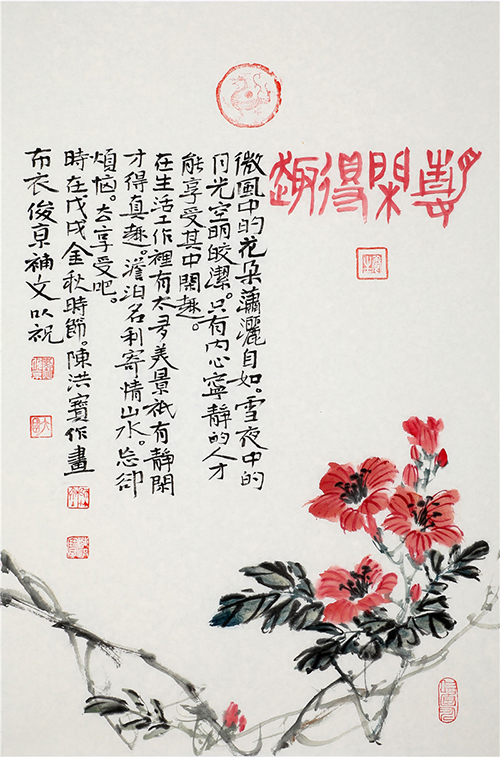 閑得趣
微風中的花朵瀟灑自如。雪夜中的
月光空明皎潔。只有内心寧靜的人才
能享受其中閑趣。
在生活工作裡有太多美景祇有靜閑
才得真趣。澹泊名利寄情山水。忘卻
煩恼。去享受吧
時在戊戌金秋時節。陳洪寶作畫
布衣俊京補文以祝